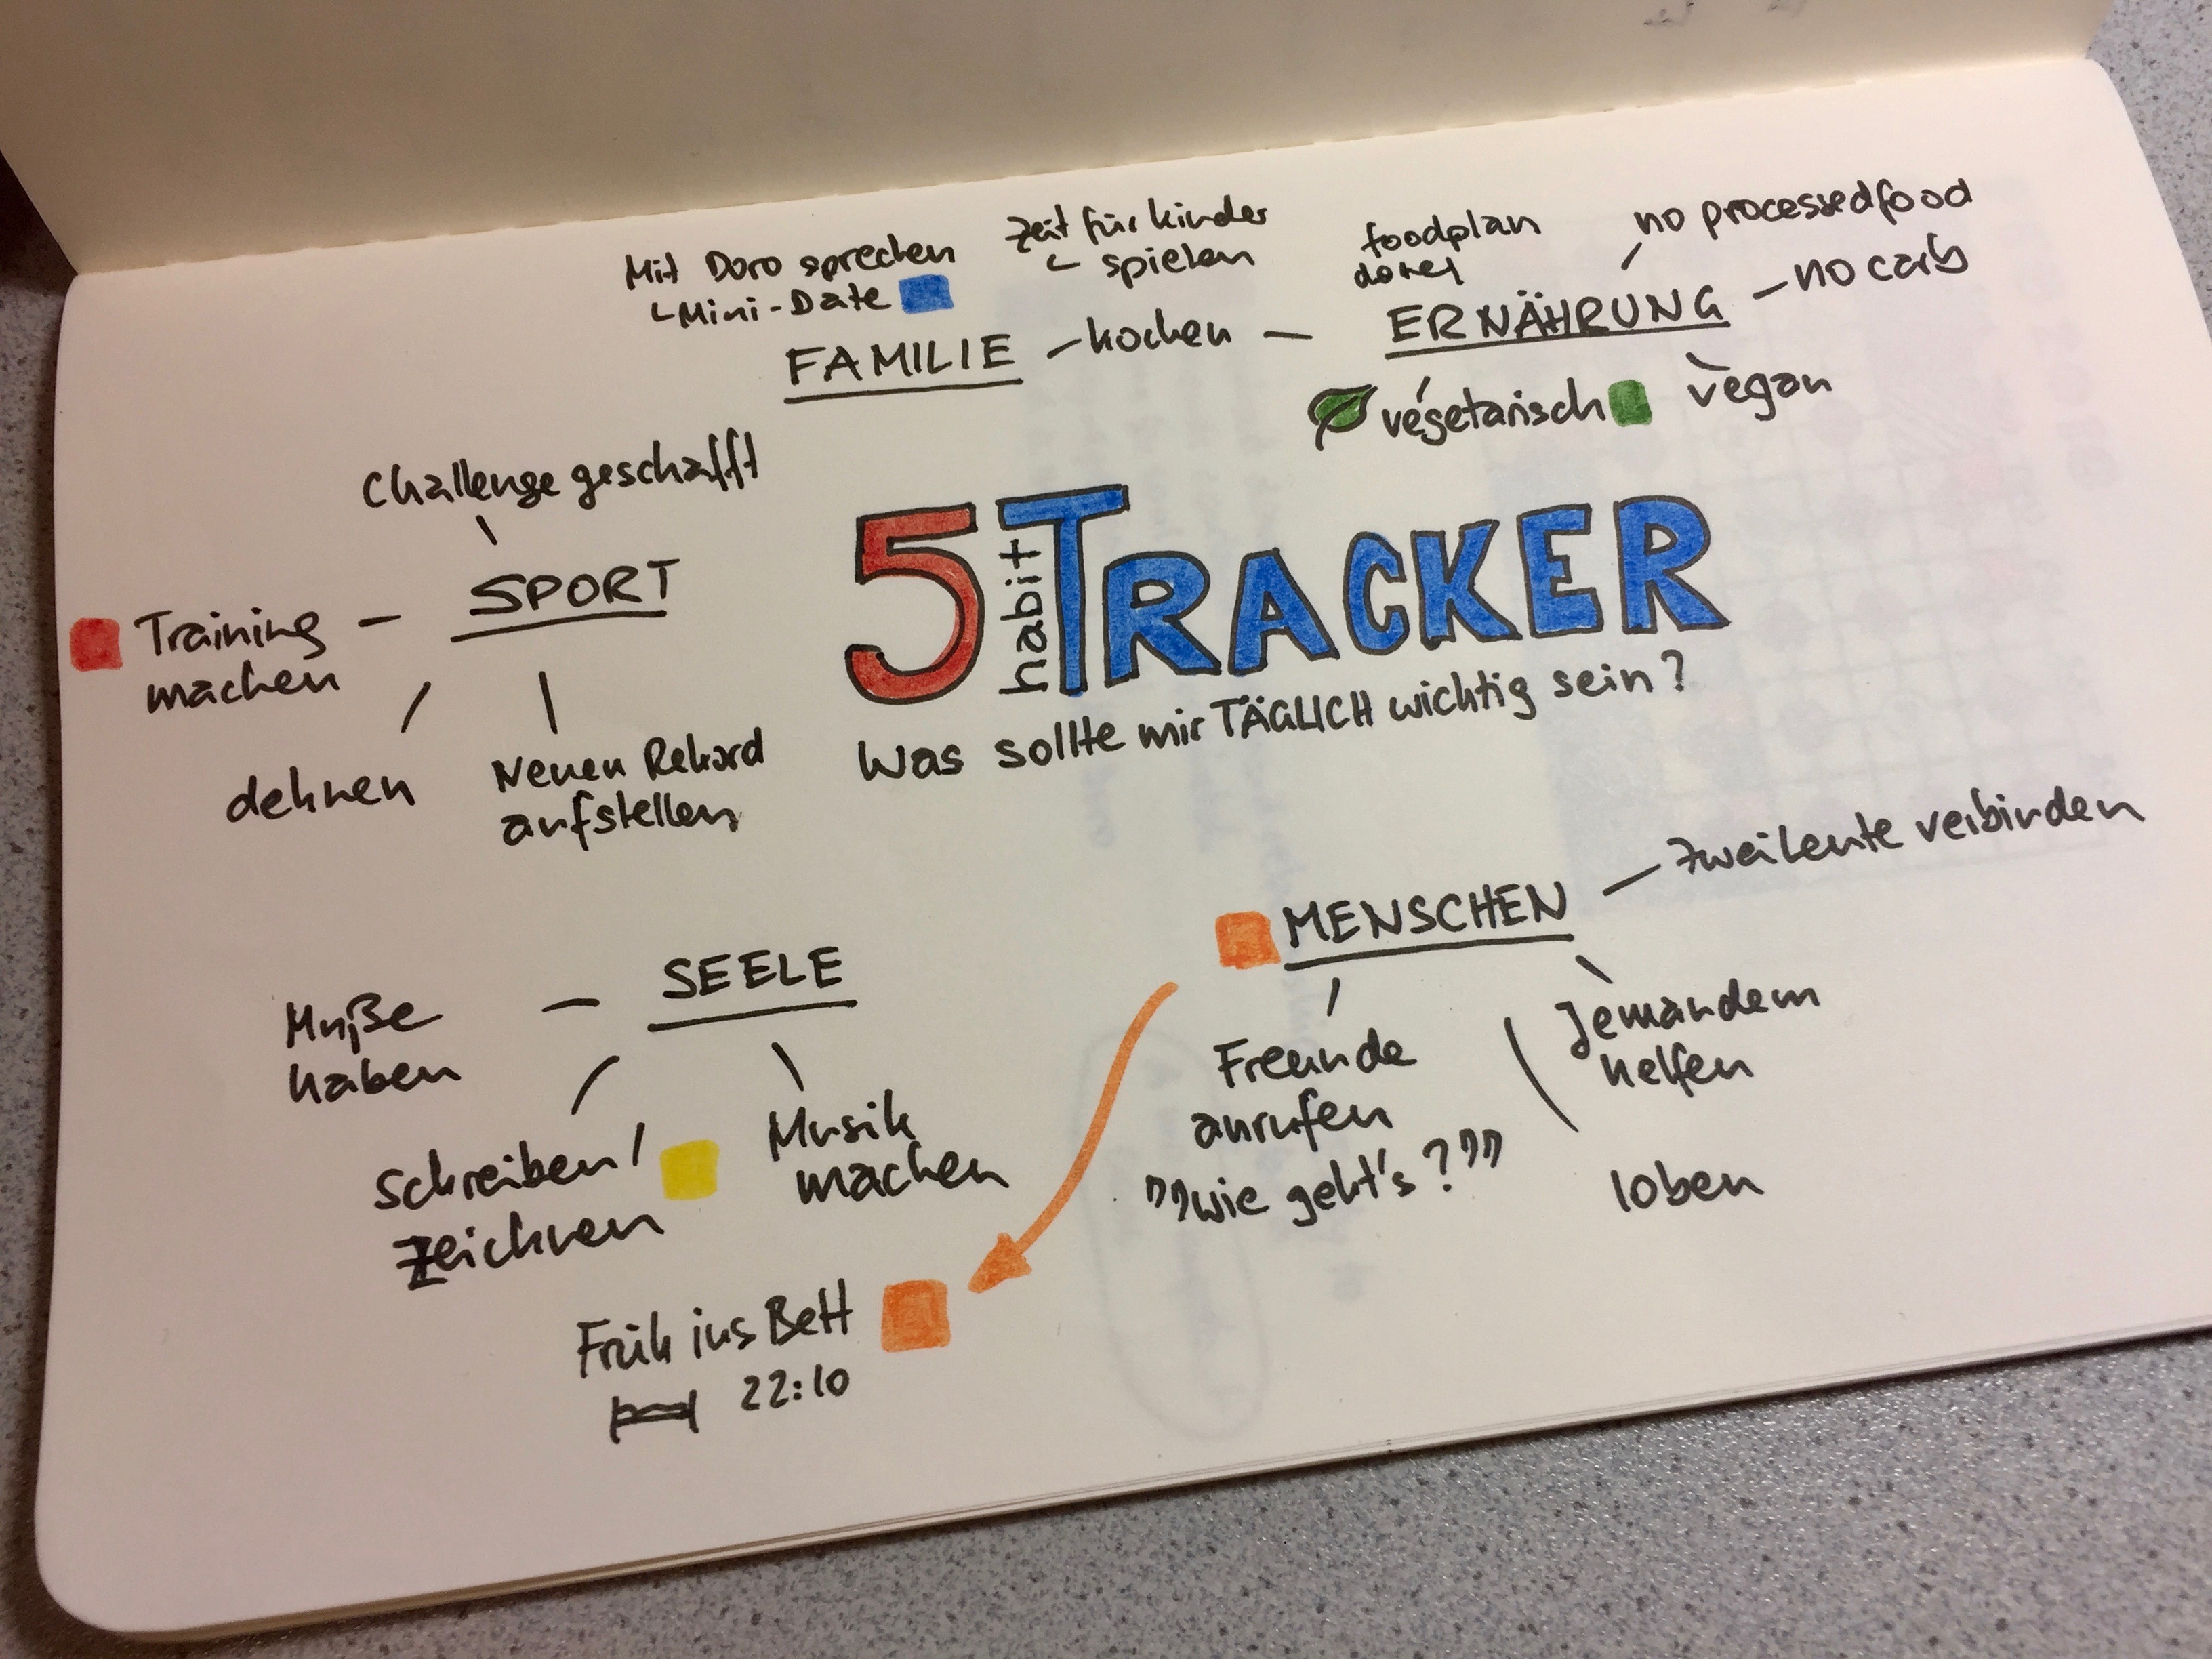 Mit Doro sprechen
Mini-Date
Zeit für Kinder
spielen
foodplan
no processedfood
FAMILIE
kochen
ERNÄHRUNG
no carb
vegetarisch
vegan
Challenge geschafft
SPORT
Training
machen
dehnen
Neuen Rekord
aufstellen
5 habit TRACKER
Was sollte mir TÄGLICH wichtig sein?
SEELE
Muße
haben
schreiben/
zeichnen
Musik
machen
Früh ins Bett
22:10
MENSCHEN
zwei Leute verbinden
Freunde
anrufen
"wie geht's?"
Jemandem
helfen
loben